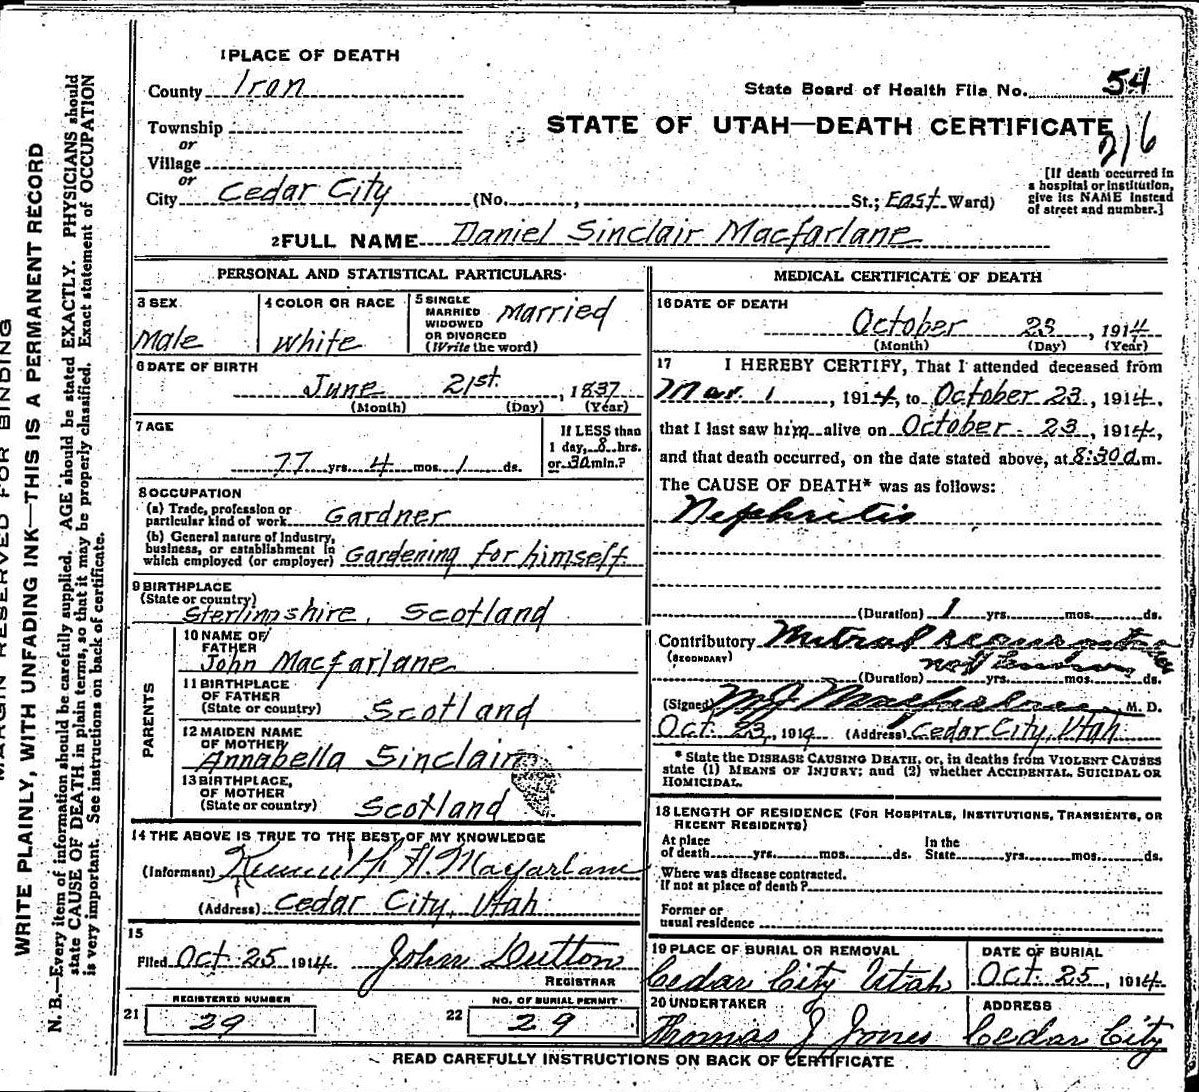 1 PLACE OF DEATH
County Iron
State Board of Health File No. 54
Township
STATE OF UTAH—DEATH CERTIFICATE
216
or
Village
or
City Cedar City (No. , St.; East Ward)
[If death occurred in
a hospital or institution,
give its NAME instead
of street and number.]
2 FULL NAME Daniel Sinclair Macfarlane
PERSONAL AND STATISTICAL PARTICULARS
3 SEX
Male
4 COLOR OR RACE
White
5 SINGLE
MARRIED
WIDOWED
OR DIVORCED
(Write the word)
Married
6 DATE OF BIRTH
June 21st. , 1837
(Month) (Day) (Year)
7 AGE
77 yrs. 4 mos. 1 ds.
If LESS than
1 day, 8 hrs.
or 30 min.?
8 OCCUPATION
(a) Trade, profession or
particular kind of work Gardner
(b) General nature of Industry,
business, or establishment in
which employed (or employer) Gardening for himself.
9 BIRTHPLACE
(State or country)
Sterlingshire, Scotland
PARENTS
10 NAME OF
FATHER
John Macfarlane
11 BIRTHPLACE
OF FATHER
(State or country) Scotland
12 MAIDEN NAME
OF MOTHER
Annabella Sinclair
13 BIRTHPLACE,
OF MOTHER
(State or country) Scotland
14 THE ABOVE IS TRUE TO THE BEST OF MY KNOWLEDGE
(Informant) Macfarlane
(Address) Cedar City, Utah
15
Filed Oct 25 1914 John Dutton
REGISTRAR
REGISTERED NUMBER
21 29
NO. OF BURIAL PERMIT
22 29
MEDICAL CERTIFICATE OF DEATH
16 DATE OF DEATH
October 23 , 1914
(Month) (Day) (Year)
17 I HEREBY CERTIFY, That I attended deceased from
Mar. 1 , 1914, to October 23, 1914,
that I last saw him alive on October 23, 1914,
and that death occurred, on the date stated above, at 8:30 a.m.
The CAUSE OF DEATH* was as follows:
Nephritis
(Duration) 1 yrs. mos. ds.
Contributory Mitral
(SECONDARY)
(Duration) yrs. mos. ds.
(Signed) M.J. Macfarlane M. D.
Oct. 23, 1914 (Address) Cedar City, Utah
* State the DISEASE CAUSING DEATH, or, in deaths from VIOLENT CAUSES
state (1) MEANS OF INJURY; and (2) whether ACCIDENTAL, SUICIDAL OR
HOMICIDAL.
18 LENGTH OF RESIDENCE (FOR HOSPITALS, INSTITUTIONS, TRANSIENTS, OR
RECENT RESIDENTS)
At place
of death yrs. mos. ds.
In the
State yrs. mos. ds.
Where was disease contracted.
If not at place of death?
Former or
usual residence
19 PLACE OF BURIAL OR REMOVAL
Cedar City Utah
DATE OF BURIAL
Oct. 25, 1914
20 UNDERTAKER
Thomas J Jones
ADDRESS
Cedar City
READ CAREFULLY INSTRUCTIONS ON BACK OF CERTIFICATE
MARGIN RESERVED FOR BINDING
WRITE PLAINLY, WITH UNFADING INK—THIS IS A PERMANENT RECORD
N. B.—Every item of information should be carefully supplied. AGE should be stated EXACTLY. PHYSICIANS should
state CAUSE OF DEATH in plain terms, so that it may be properly classified. Exact statement of OCCUPATION
is very important. See instructions on back of certificate.